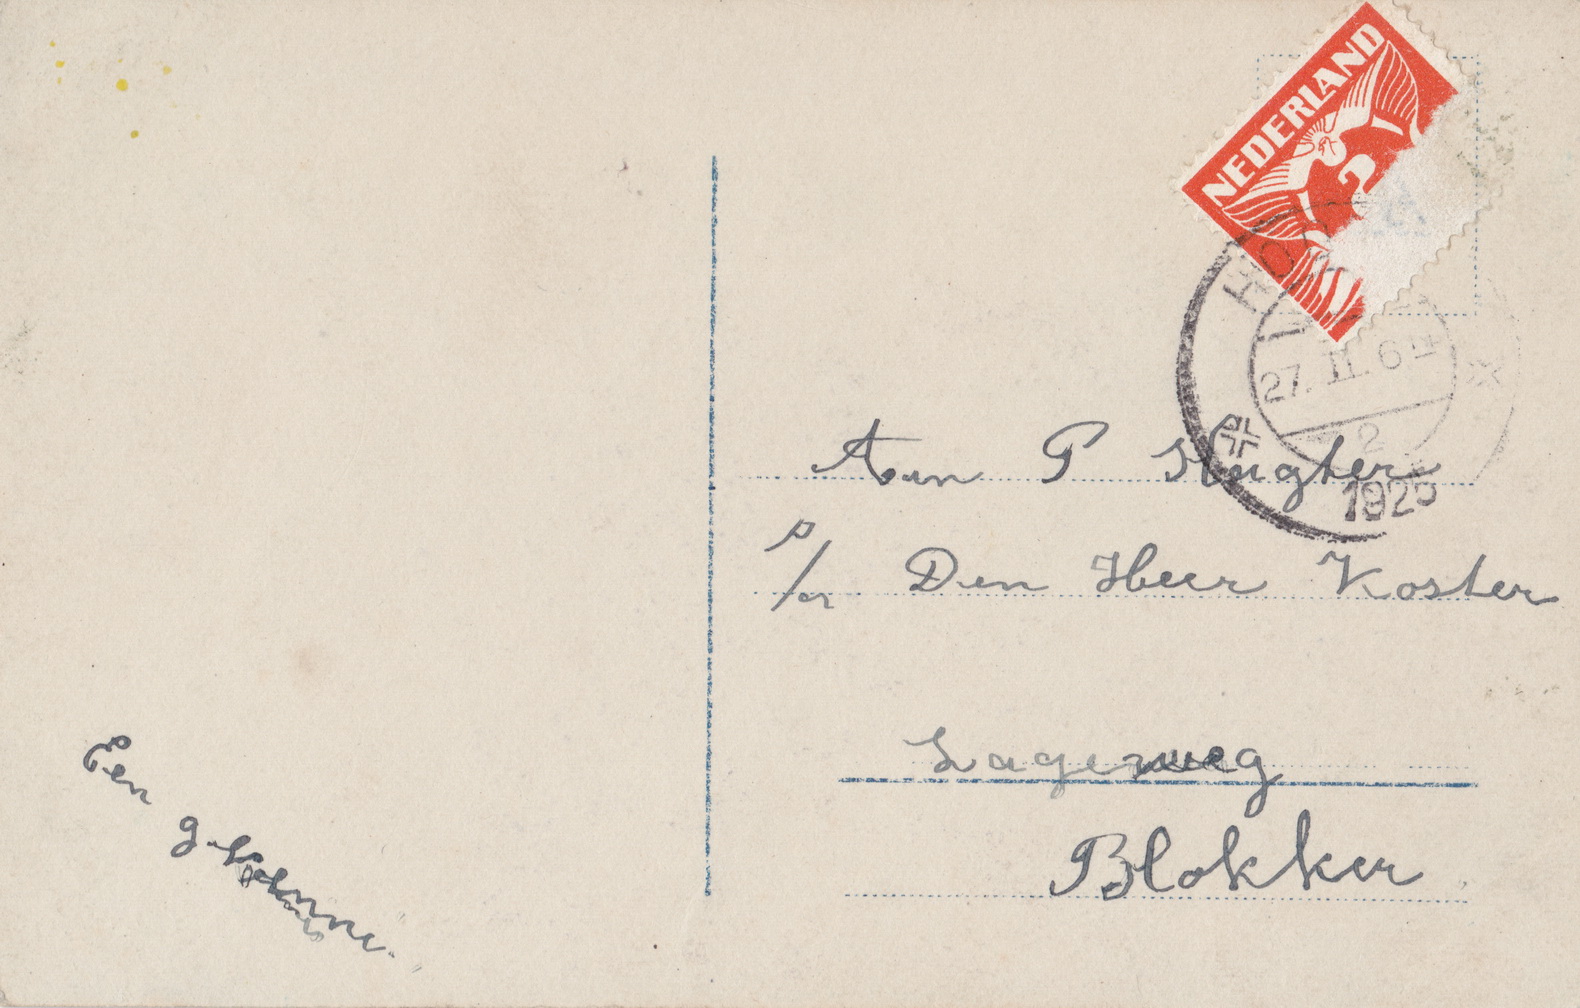 NEDERLAND
2
HOORN
27.II.6N
2
1925
Aan P Slugter
p/a Den Heer Koster
Lageweg
Blokker
Een
g.